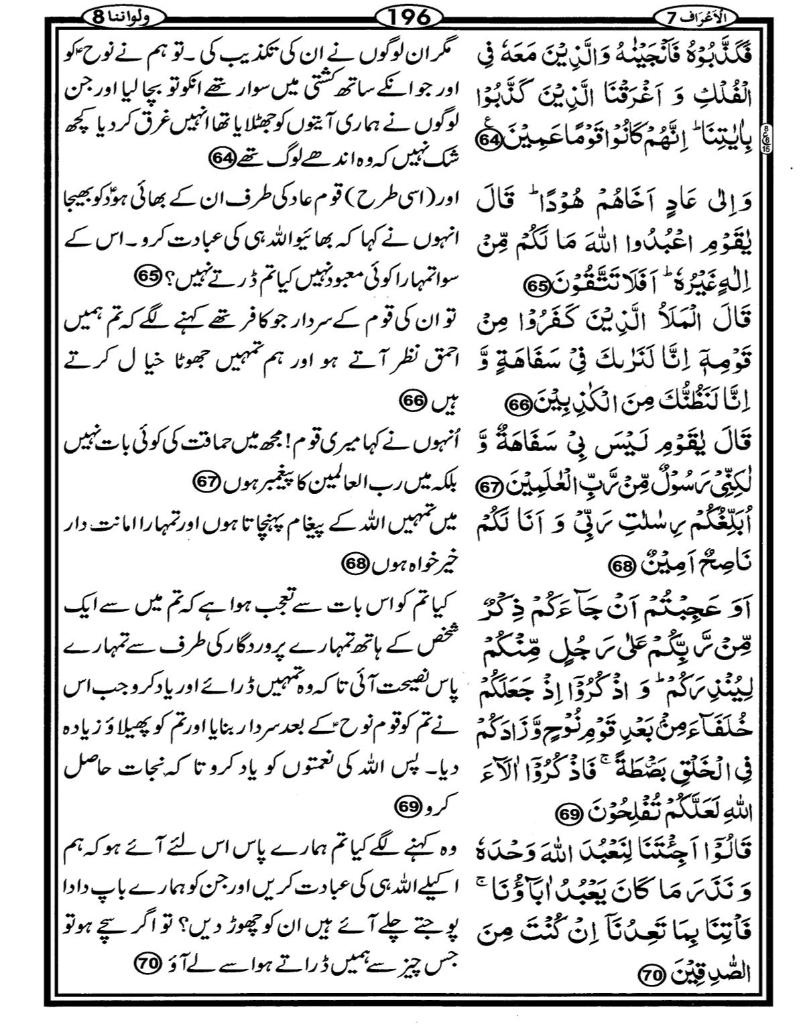 الاعراف 7
196
ولو اننا 8
فَكَذَّبُوْهُ فَاَنْجَيْنٰهُ وَالَّذِيْنَ مَعَهٗ فِي
الْفُلْكِ وَ اَغْرَقْنَا الَّذِيْنَ كَذَّبُوْا
بِاٰيٰتِنَا ؕ اِنَّهُمْ كَانُوْا قَوْمًا عَمِيْنَ ۧ 64
وَاِلٰى عَادٍ اَخَاهُمْ هُوْدًا ؕ قَالَ
يٰقَوْمِ اعْبُدُوا اللّٰهَ مَا لَكُمْ مِّنْ
اِلٰهٍ غَيْرُهٗ ؕ اَفَلَا تَتَّقُوْنَ 65
قَالَ الْمَلَاُ الَّذِيْنَ كَفَرُوْا مِنْ
قَوْمِهٖۤ اِنَّا لَنَرٰىكَ فِيْ سَفَاهَةٍ وَّ
اِنَّا لَنَظُنُّكَ مِنَ الْكٰذِبِيْنَ 66
قَالَ يٰقَوْمِ لَيْسَ بِيْ سَفَاهَةٌ وَّ
لٰكِنِّيْ رَسُوْلٌ مِّنْ رَّبِّ الْعٰلَمِيْنَ 67
اُبَلِّغُكُمْ رِسٰلٰتِ رَبِّيْ وَ اَنَا لَكُمْ
نَاصِحٌ اَمِيْنٌ 68
اَوَ عَجِبْتُمْ اَنْ جَآءَكُمْ ذِكْرٌ
مِّنْ رَّبِّكُمْ عَلٰى رَجُلٍ مِّنْكُمْ
لِيُنْذِرَكُمْ ؕ وَ اذْكُرُوْۤا اِذْ جَعَلَكُمْ
خُلَفَآءَ مِنْۢ بَعْدِ قَوْمِ نُوْحٍ وَّزَادَكُمْ
فِي الْخَلْقِ بَصْۜطَةً ۚ فَاذْكُرُوْۤا اٰلَآءَ
اللّٰهِ لَعَلَّكُمْ تُفْلِحُوْنَ 69
قَالُوْۤا اَجِئْتَنَا لِنَعْبُدَ اللّٰهَ وَحْدَهٗ
وَ نَذَرَ مَا كَانَ يَعْبُدُ اٰبَآؤُنَا ۚ
فَاْتِنَا بِمَا تَعِدُنَاۤ اِنْ كُنْتَ مِنَ
الصّٰدِقِيْنَ 70
مگر ان لوگوں نے ان کی تکذیب کی ۔ تو ہم نے نوحؑ کو
اور جو انکے ساتھ کشتی میں سوار تھے انکو تو بچا لیا اور جن
لوگوں نے ہماری آیتوں کو جھٹلایا تھا انہیں غرق کر دیا کچھ
شک نہیں کہ وہ اندھے لوگ تھے 64
اور (اسی طرح) قوم عاد کی طرف ان کے بھائی ہودؑ کو بھیجا
انہوں نے کہا کہ بھائیو اللہ ہی کی عبادت کرو۔ اس کے
سوا تمہارا کوئی معبود نہیں کیا تم ڈرتے نہیں؟ 65
تو ان کی قوم کے سردار جو کافر تھے کہنے لگے کہ تم ہمیں
احمق نظر آتے ہو اور ہم تمہیں جھوٹا خیال کرتے
ہیں 66
اُنہوں نے کہا میری قوم! مجھ میں حماقت کی کوئی بات نہیں
بلکہ میں رب العالمین کا پیغمبر ہوں 67
میں تمہیں اللہ کے پیغام پہنچاتا ہوں اور تمہارا امانت دار
خیر خواہ ہوں 68
کیا تم کو اس بات سے تعجب ہوا ہے کہ تم میں سے ایک
شخص کے ہاتھ تمہارے پروردگار کی طرف سے تمہارے
پاس نصیحت آئی تا کہ وہ تمہیں ڈرائے اور یاد کرو جب اس
نے تم کو قوم نوحؑ کے بعد سردار بنایا اور تم کو پھیلاؤ زیادہ
دیا۔ پس اللہ کی نعمتوں کو یاد کرو تا کہ نجات حاصل
کرو 69
وہ کہنے لگے کیا تم ہمارے پاس اس لئے آئے ہو کہ ہم
اکیلے اللہ ہی کی عبادت کریں اور جن کو ہمارے باپ دادا
پوجتے چلے آئے ہیں ان کو چھوڑ دیں؟ تو اگر سچے ہو تو
جس چیز سے ہمیں ڈراتے ہو اسے لے آؤ 70